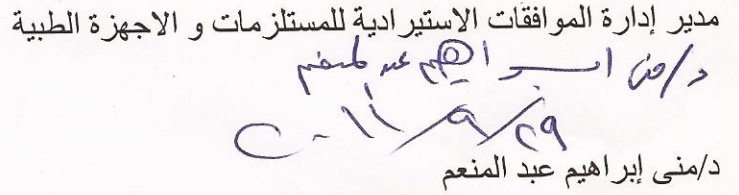 مدير إدارة الموافقات الاستيرادية للمستلزمات و الاجهزة الطبية
د/منى ابراهيم عبد المنعم
٢٠١١/٩/٢٩
د/منى إبراهيم عبد المنعم